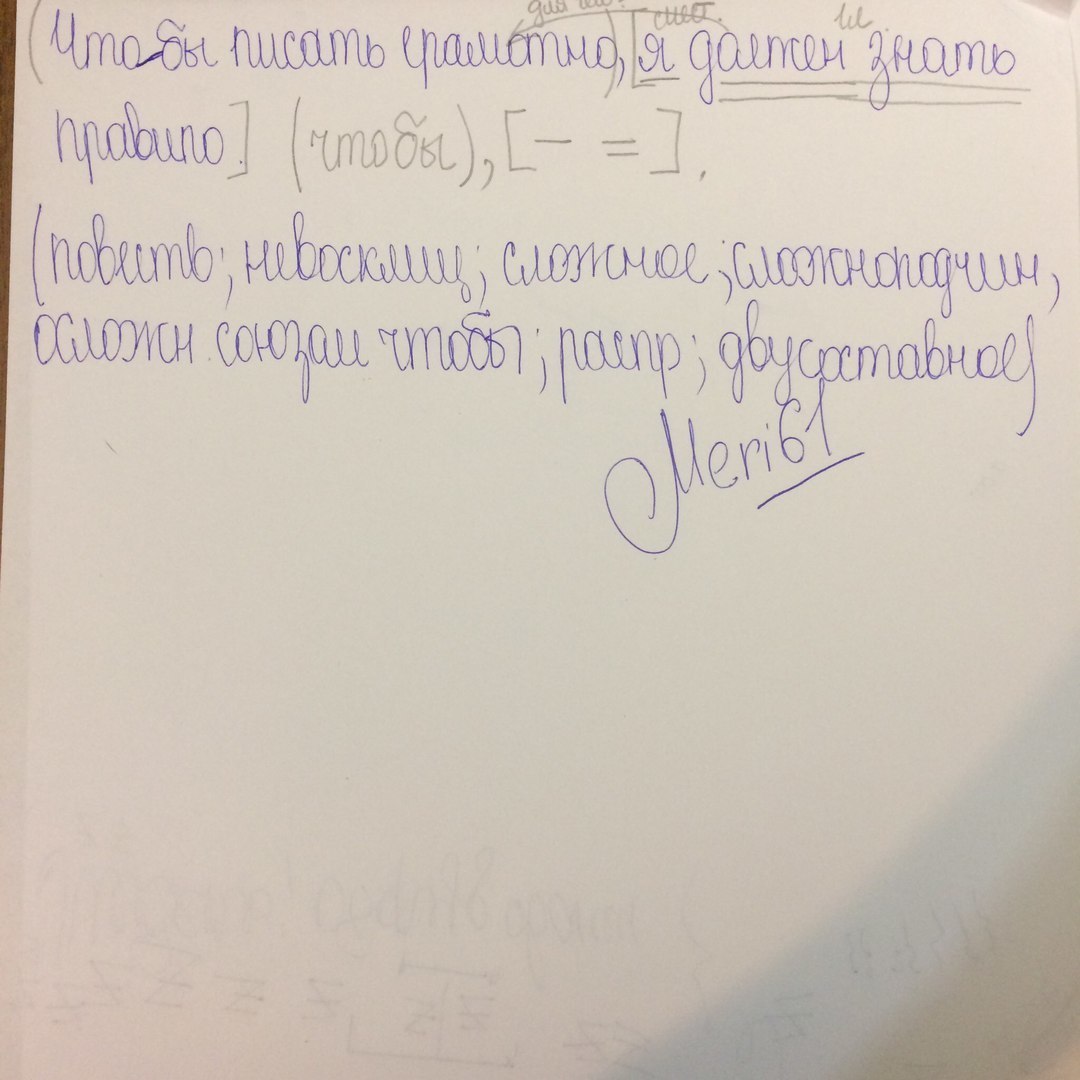 для чег?
мест. гл
(Что бы писать грамотно), [я должен знать
правило.] (чтобы), [— =].
(повеств; невосклиц; сложное; сложноподчин,
осложн. союзам чтобы; распр; двусоставное)
Meri61